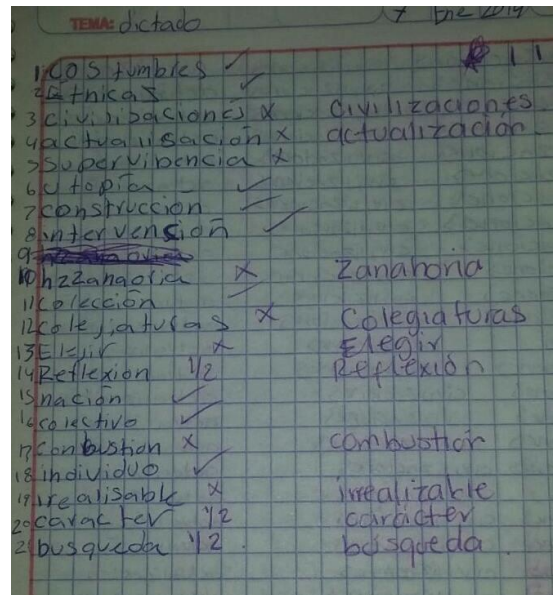 TEMA: dictado 7 Ene 2019
1 costumbres ✓
2 Etnicas ✓
3 civilisaciones x civilizaciones
4 actualisación x actualización
5 supervibencia x
6 Utopía ✓
7 construcción ✓
8 intervensión ✓
9
10 hzzanaoria x zanahoria
11 colección ✓
12 colejiaturas x Colegiaturas
13 Elejir x Elegir
14 Reflexion 1/2 Reflexión
15 nación ✓
16 colectivo ✓
17 conbustion x combustion
18 individuo ✓
19 irealisable x irrealizable
20 caracter 1/2 carácter
21 busqueda 1/2 búsqueda